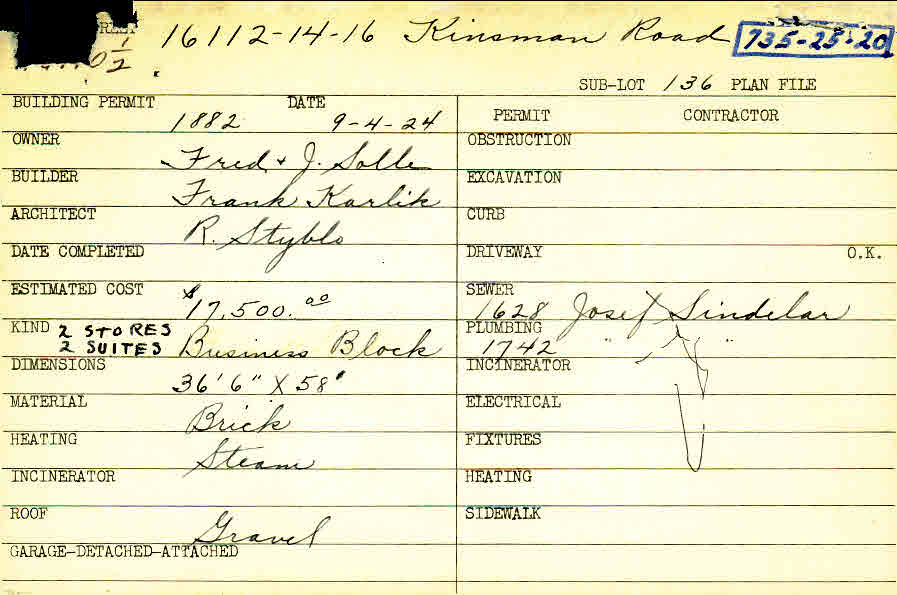 16112-14-16 Kinsman Road 735-25-20
1/2
SUB-LOT 136 PLAN FILE
BUILDING PERMIT DATE
1882 9-4-24
OWNER Fred & J. Solle
BUILDER Frank Karlik
ARCHITECT R. Styblo
DATE COMPLETED
ESTIMATED COST $17,500.00
KIND 2 STORES
2 SUITES Business Block
DIMENSIONS 36'6" X 58'
MATERIAL Brick
HEATING Steam
INCINERATOR
ROOF Gravel
GARAGE-DETACHED-ATTACHED
PERMIT CONTRACTOR
OBSTRUCTION
EXCAVATION
CURB
DRIVEWAY O.K.
SEWER 1628 Josef Sindelar
PLUMBING 1742 " "
INCINERATOR
ELECTRICAL
FIXTURES
HEATING
SIDEWALK